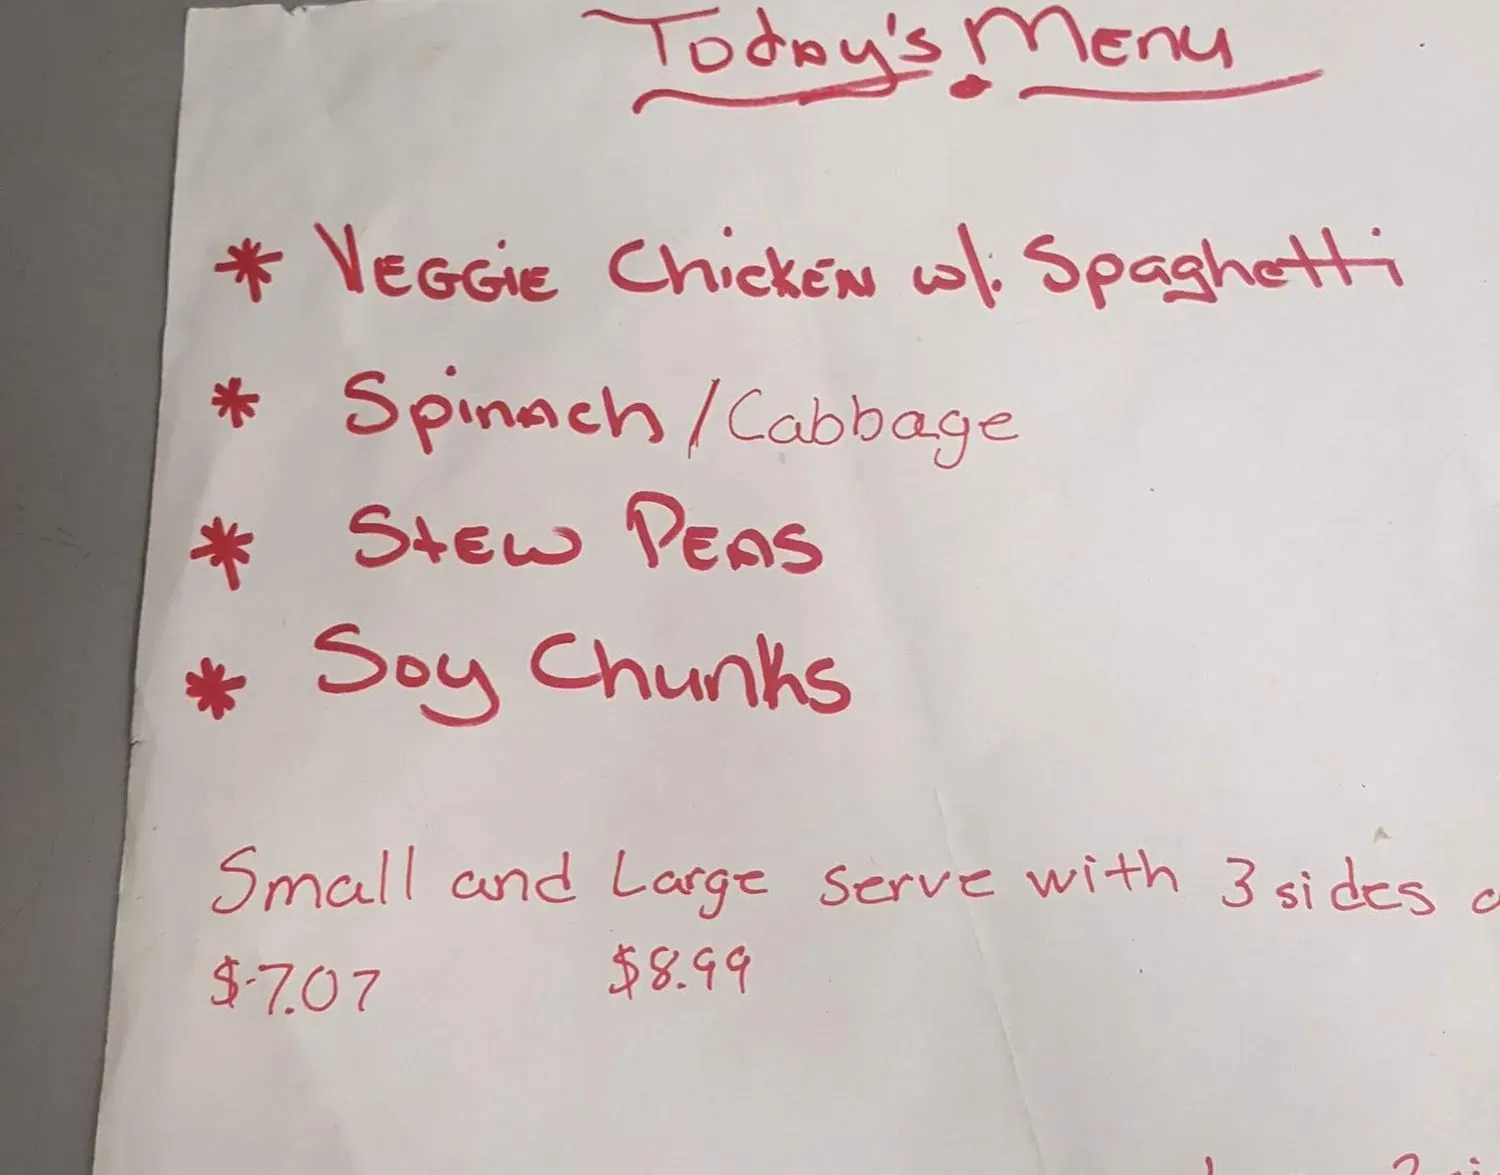 Today's Menu
* Veggie Chicken w/. Spaghetti
* Spinach/Cabbage
* Stew Peas
* Soy Chunks
Small and Large serve with 3 sides
$7.07 $8.99